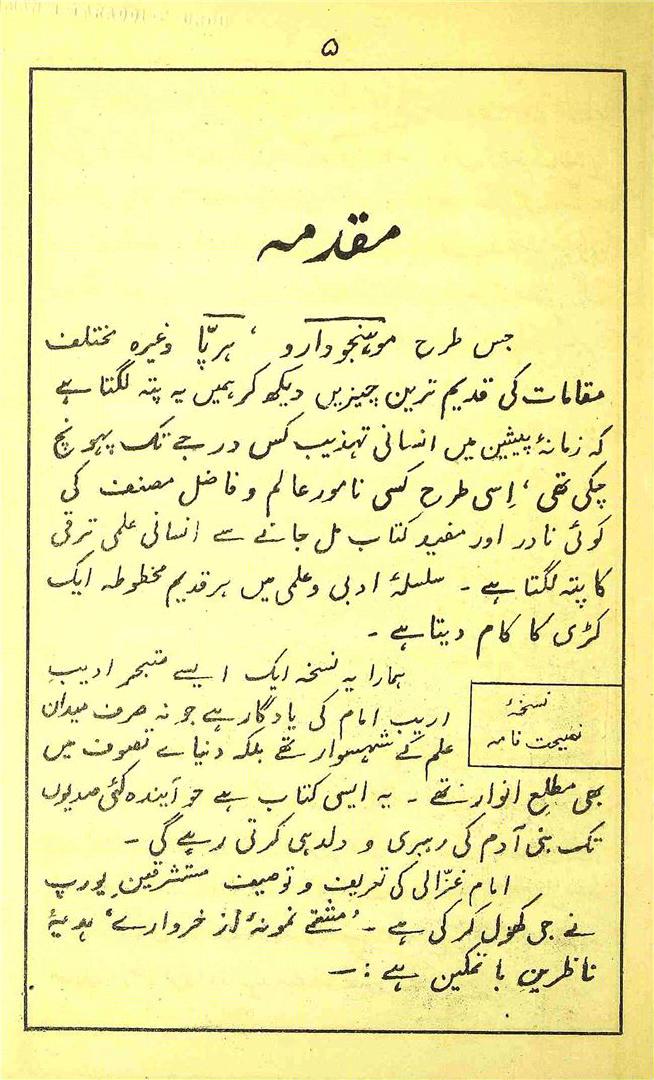 ۵
مقدمہ
جس طرح موہنجودارو ، ہرپّا وغیرہ مختلف
مقامات کی قدیم ترین چیزیں دیکھ کر ہمیں یہ پتہ لگتا ہے
کہ زمانۂ پیشین میں انسانی تہذیب کس درجے تک پہونچ
چکی تھی ، اِسی طرح کسی نامور عالم و فاضل مصنف کی
کوئی نادر اور مفید کتاب مل جانے سے انسانی علمی ترقی
کا پتہ لگتا ہے ۔ سلسلۂ ادبی و علمی میں ہر قدیم مخطوطہ ایک
کڑی کا کام دیتا ہے ۔
نسخۂ
نصیحت نامہ
ہمارا یہ نسخہ ایک ایسے متبحر ادیبِ
اریب امام کی یادگار ہے جو نہ صرف میدان
علم کے شہسوار تھے بلکہ دنیاے تصوف میں
بھی مطلعِ انوار تھے ۔ یہ ایسی کتاب ہے جو آیندہ کئی صدیوں
تک بنی آدم کی رہبری و دلدہی کرتی رہے گی ۔
امام غزّالی کی تعریف و توصیف مستشرقینِ یورپ
نے جی کھول کر کی ہے ۔ ’مشتے نمونۂ از خروارے‘ ہدیۂ
ناظرینِ باتمکین ہے :—